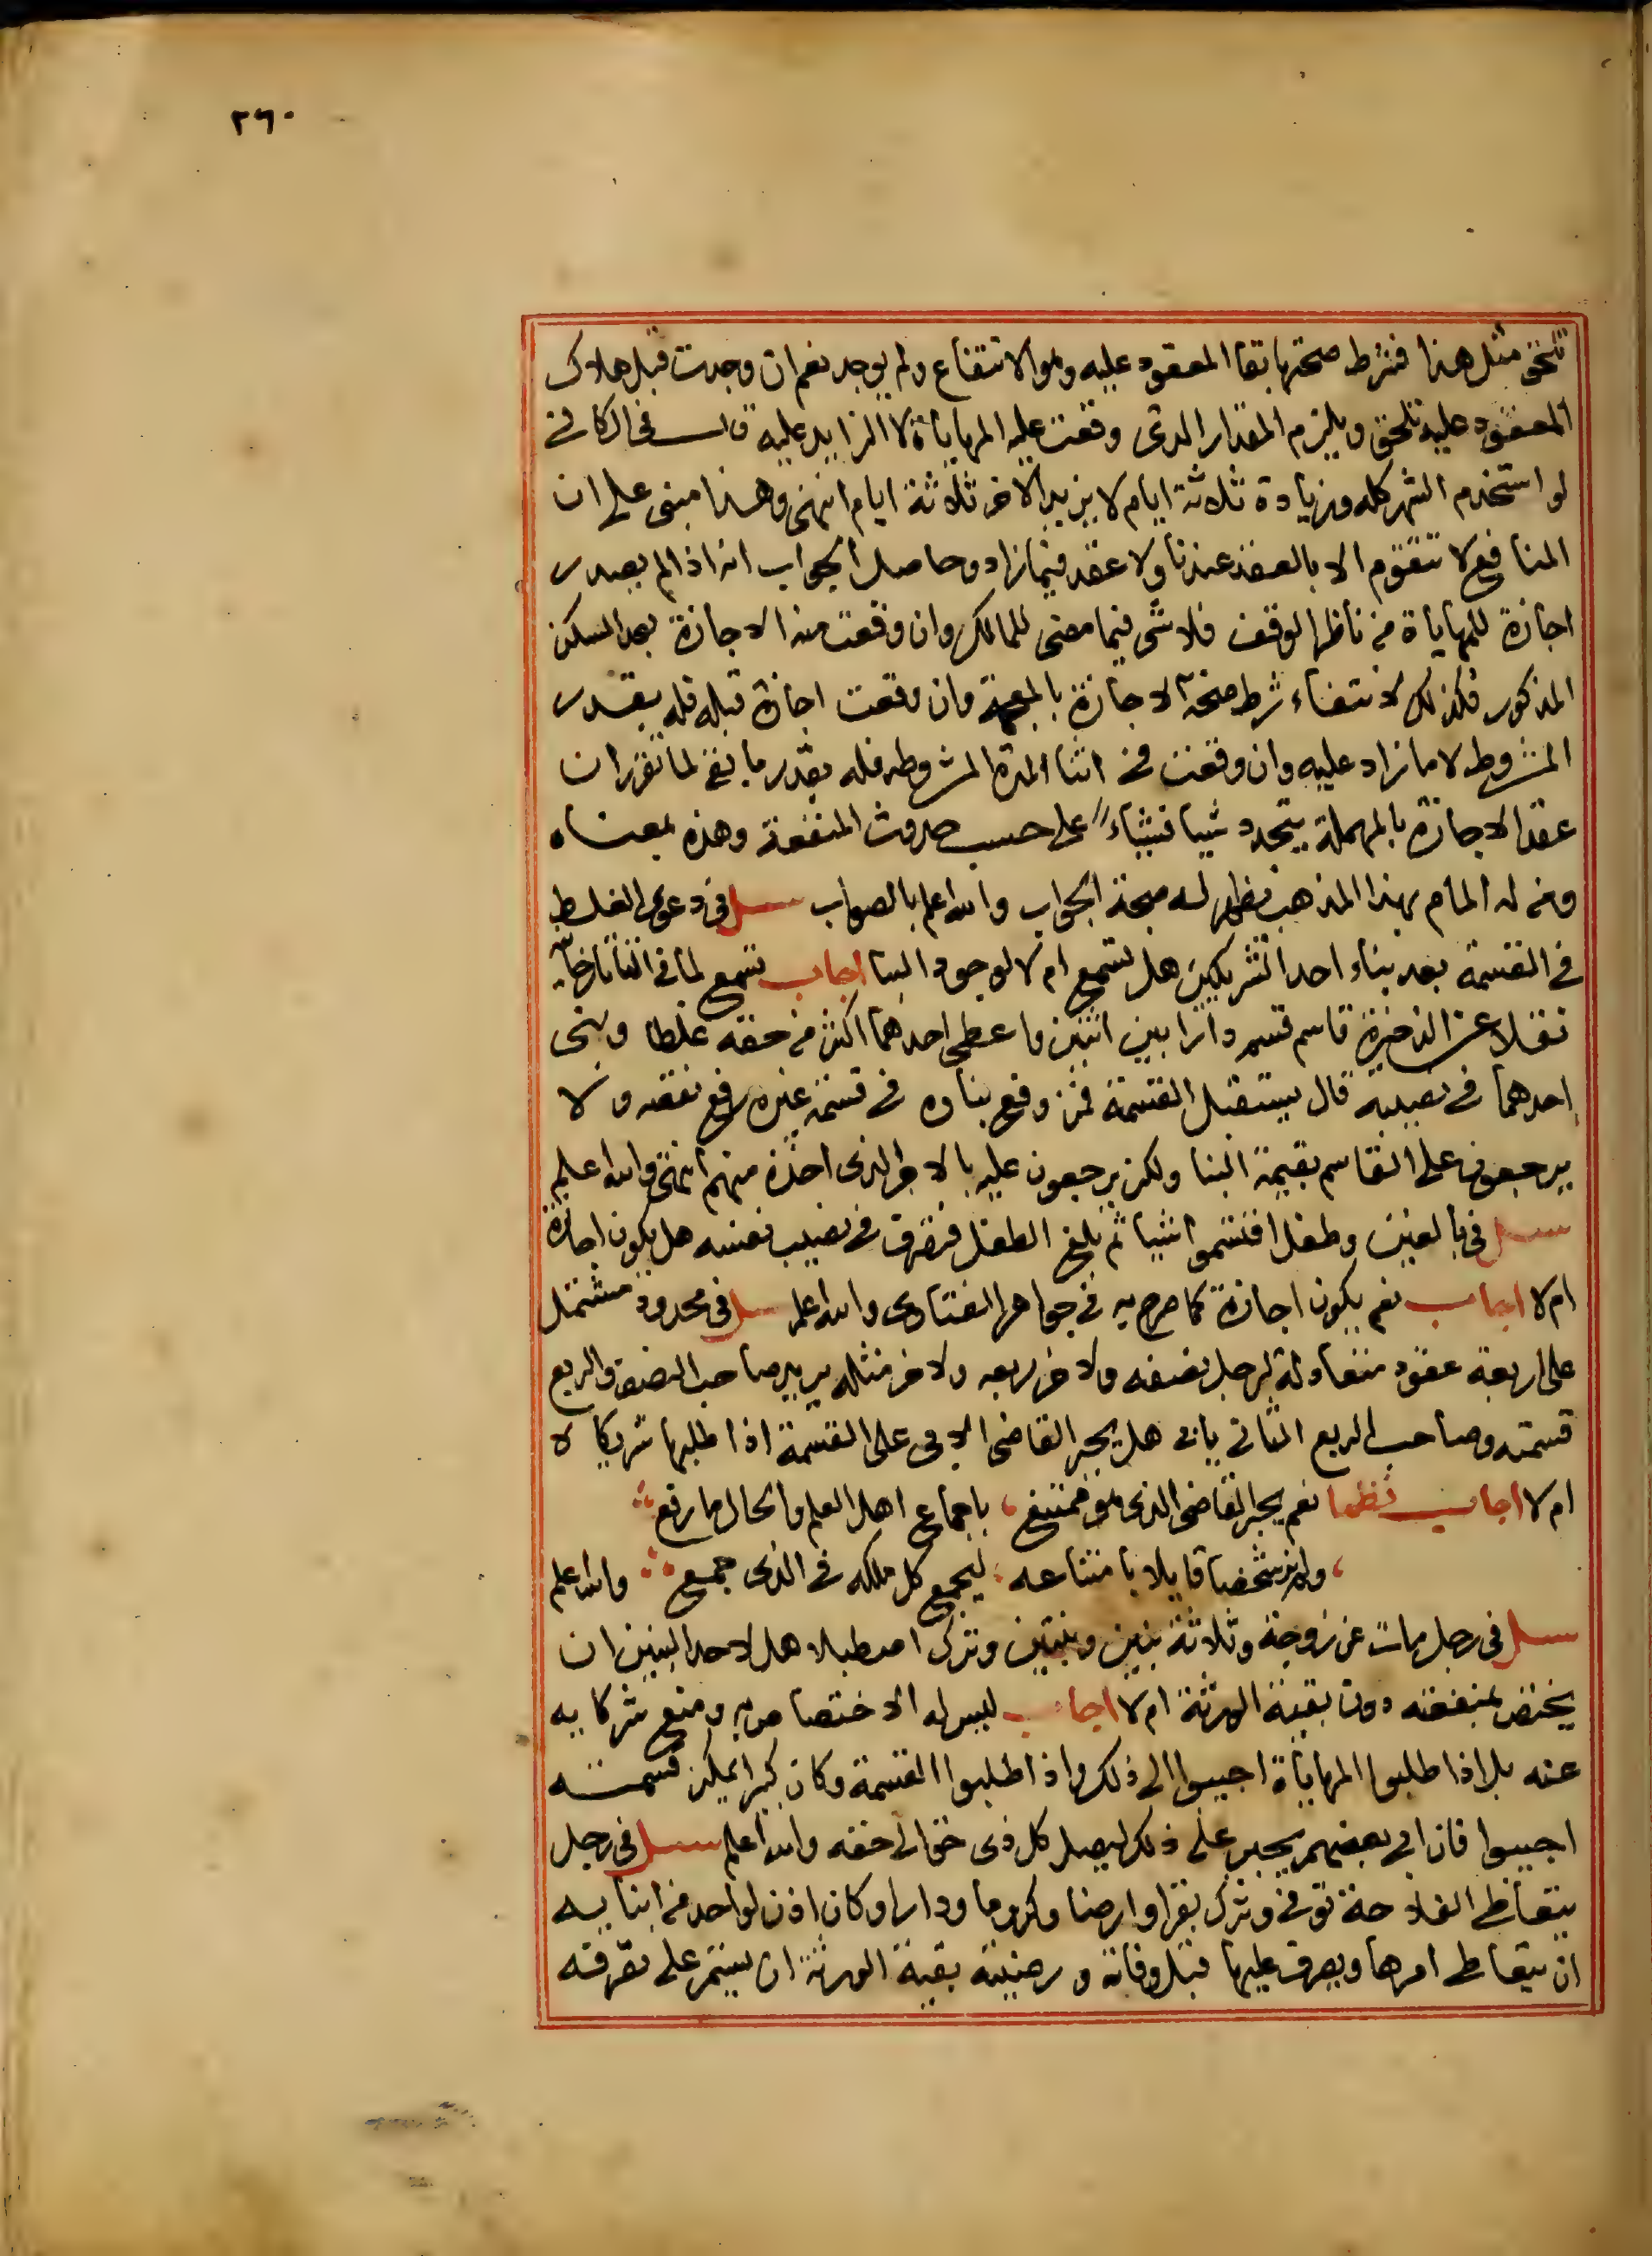 ٢٦٠
تلحق مثل هذا فشرط صحتها بقا المعقود عليه وهو الانتفاع ولم يوجد نعم ان وجدت قبل هلاك
المعقود عليه تلحق ويلزم المقدار الذي وقعت عليه المهاياة لا الزايد عليه قال في الكافي
لو استخدم الشهر كله وزيادة ثلاثة ايام لا يزيد الاخر ثلاثة ايام انتهى وهذا مبنى على ان
المنافع لا تتقوم الا بالعقد عندنا ولا عقد فيما زاد وحاصل الجواب انه اذا لم يصدر
اجازة للمهاياة من ناظر الوقف فلا شى فيما مضى للمالك وان وقعت منه الاجازة بعد السكن
المذكور فكذلك لانتفاء شرط صحة الاجازة بالمعجمة وان وقعت اجازة قبله فله بقدر
المشروط لا ما زاد عليه وان وقعت في اثنا المدة المشروطه فله بقدر ما بقى لما تقرر ان
عقد الاجارة بالمهملة يتجدد شيا فشياء على حسب حدوث المنفعة وهذه بمعناه
ومن له المام بهذا المذهب يظهر له صحة الجواب والله اعلم بالصواب سئل في دعوى الغلط
في القسمة بعد بناء احد الشريكين هل تسمع ام لا لوجود البنا اجاب تسمع لما في التاتارخانية
نقلا عن الذخيرة قاسم قسم دارا بين اثنين واعطى احدهما اكثر من حقه غلطا وبنى
احدهما في نصيبه قال يستقبل القسمة فمن وقع بناوه في قسمة غيره رفع نقضه ولا
يرجعون على القاسم بقيمة البنا ولكن يرجعون عليه بالاجر الذي اخذه منهم انتهى والله اعلم
سئل في بالغين وطفل اقتسموا شيا ثم بلغ الطفل فتصرف في نصيب نفسه هل يكون اجازة
ام لا اجاب نعم يكون اجازة كما صرح به في جواهر الفتاوى والله اعلم سئل في محدود مشتمل
على اربعة عقود متفاوتة لرجل نصفه ولاخر ربعه ولاخر مثله يريد صاحب النصف والربع
قسمته وصاحب الربع الثاني يابى هل يجبر القاضي الابى على القسمة اذا طلبها شريكاه
ام لا اجاب نظما نعم يجبر القاضي الذي هو ممتنع باجماع اهل العلم والحال ما رفع
ولم نر شخصا قايلا بامتناعه ليجمع كل ملكه في الذي جمع والله اعلم
سئل في رجل مات عن زوجة وثلاثة بنين وبنتين وترك اصطبلا هل لاحد البنين ان
يختص بمنفعته دون بقية الورثة ام لا اجاب ليس له الاختصاص به ومنع شركايه
عنه بل اذا طلبوا المهاياة اجيبوا الى ذلك واذا طلبوا القسمة وكان كبيرا يمكن قسمته
اجيبوا فان ابى بعضهم يجبر على ذلك ليصل كل ذى حق الى حقه والله اعلم سئل في رجل
يتعاطى الفلاحة توفي وترك بقرا وارضا وكروما ودارا وكان اذن لواحد من ابنايه
ان يتعاطى امرها ويصرف عليها قبل وفاته ورضيت بقية الورثة ان يستمر على تصرفه